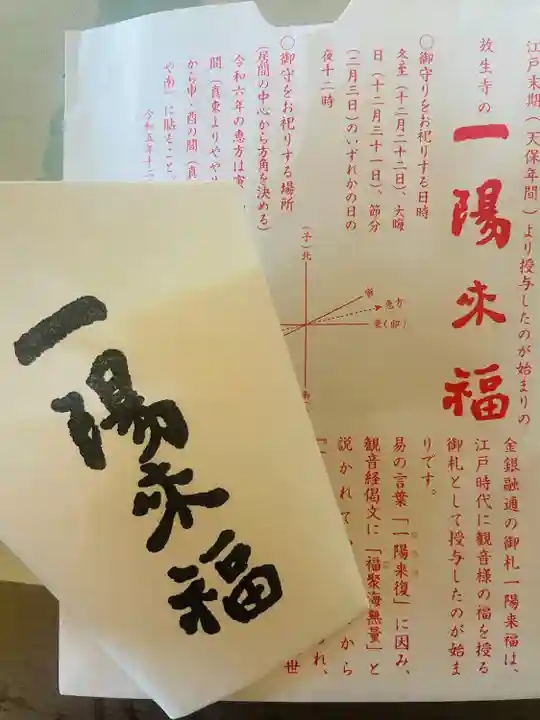 江戸末期(天保年間)より授与したのが始まりの
放生寺の
一陽来福
〇御守りをお祀りする日時
冬至(十二月二十二日)、大晦
日(十二月三十一日)、節分
(二月三日)のいずれかの日の
夜十二時
〇御守をお祀りする場所
(居間の中心から方角を決める)
令和六年の恵方は寅、
間(真東よりやや
から申・酉の間(真
や南)に貼ること。
令和五年十二
(子)北
寅
恵方
東(卯)
南
金銀融通の御札一陽来福は、
江戸時代に観音様の福を授る
御札として授与したのが始ま
りです。
易の言葉「一陽来復」に因み、
観音経偈文に「福聚海無量」と
説かれて、
から
れ、
世
一陽来福